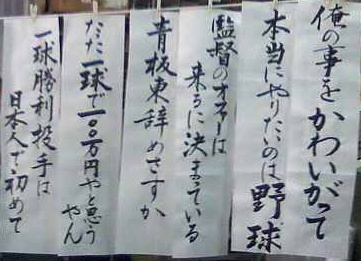 俺の事をかわいがって
本当にやりたいのは野球
監督のオファーは
来ると決まっている
青板東辞めさすか
たった一球で一〇〇万円やと思う
やん
一球勝利投手は
日本人で初めて